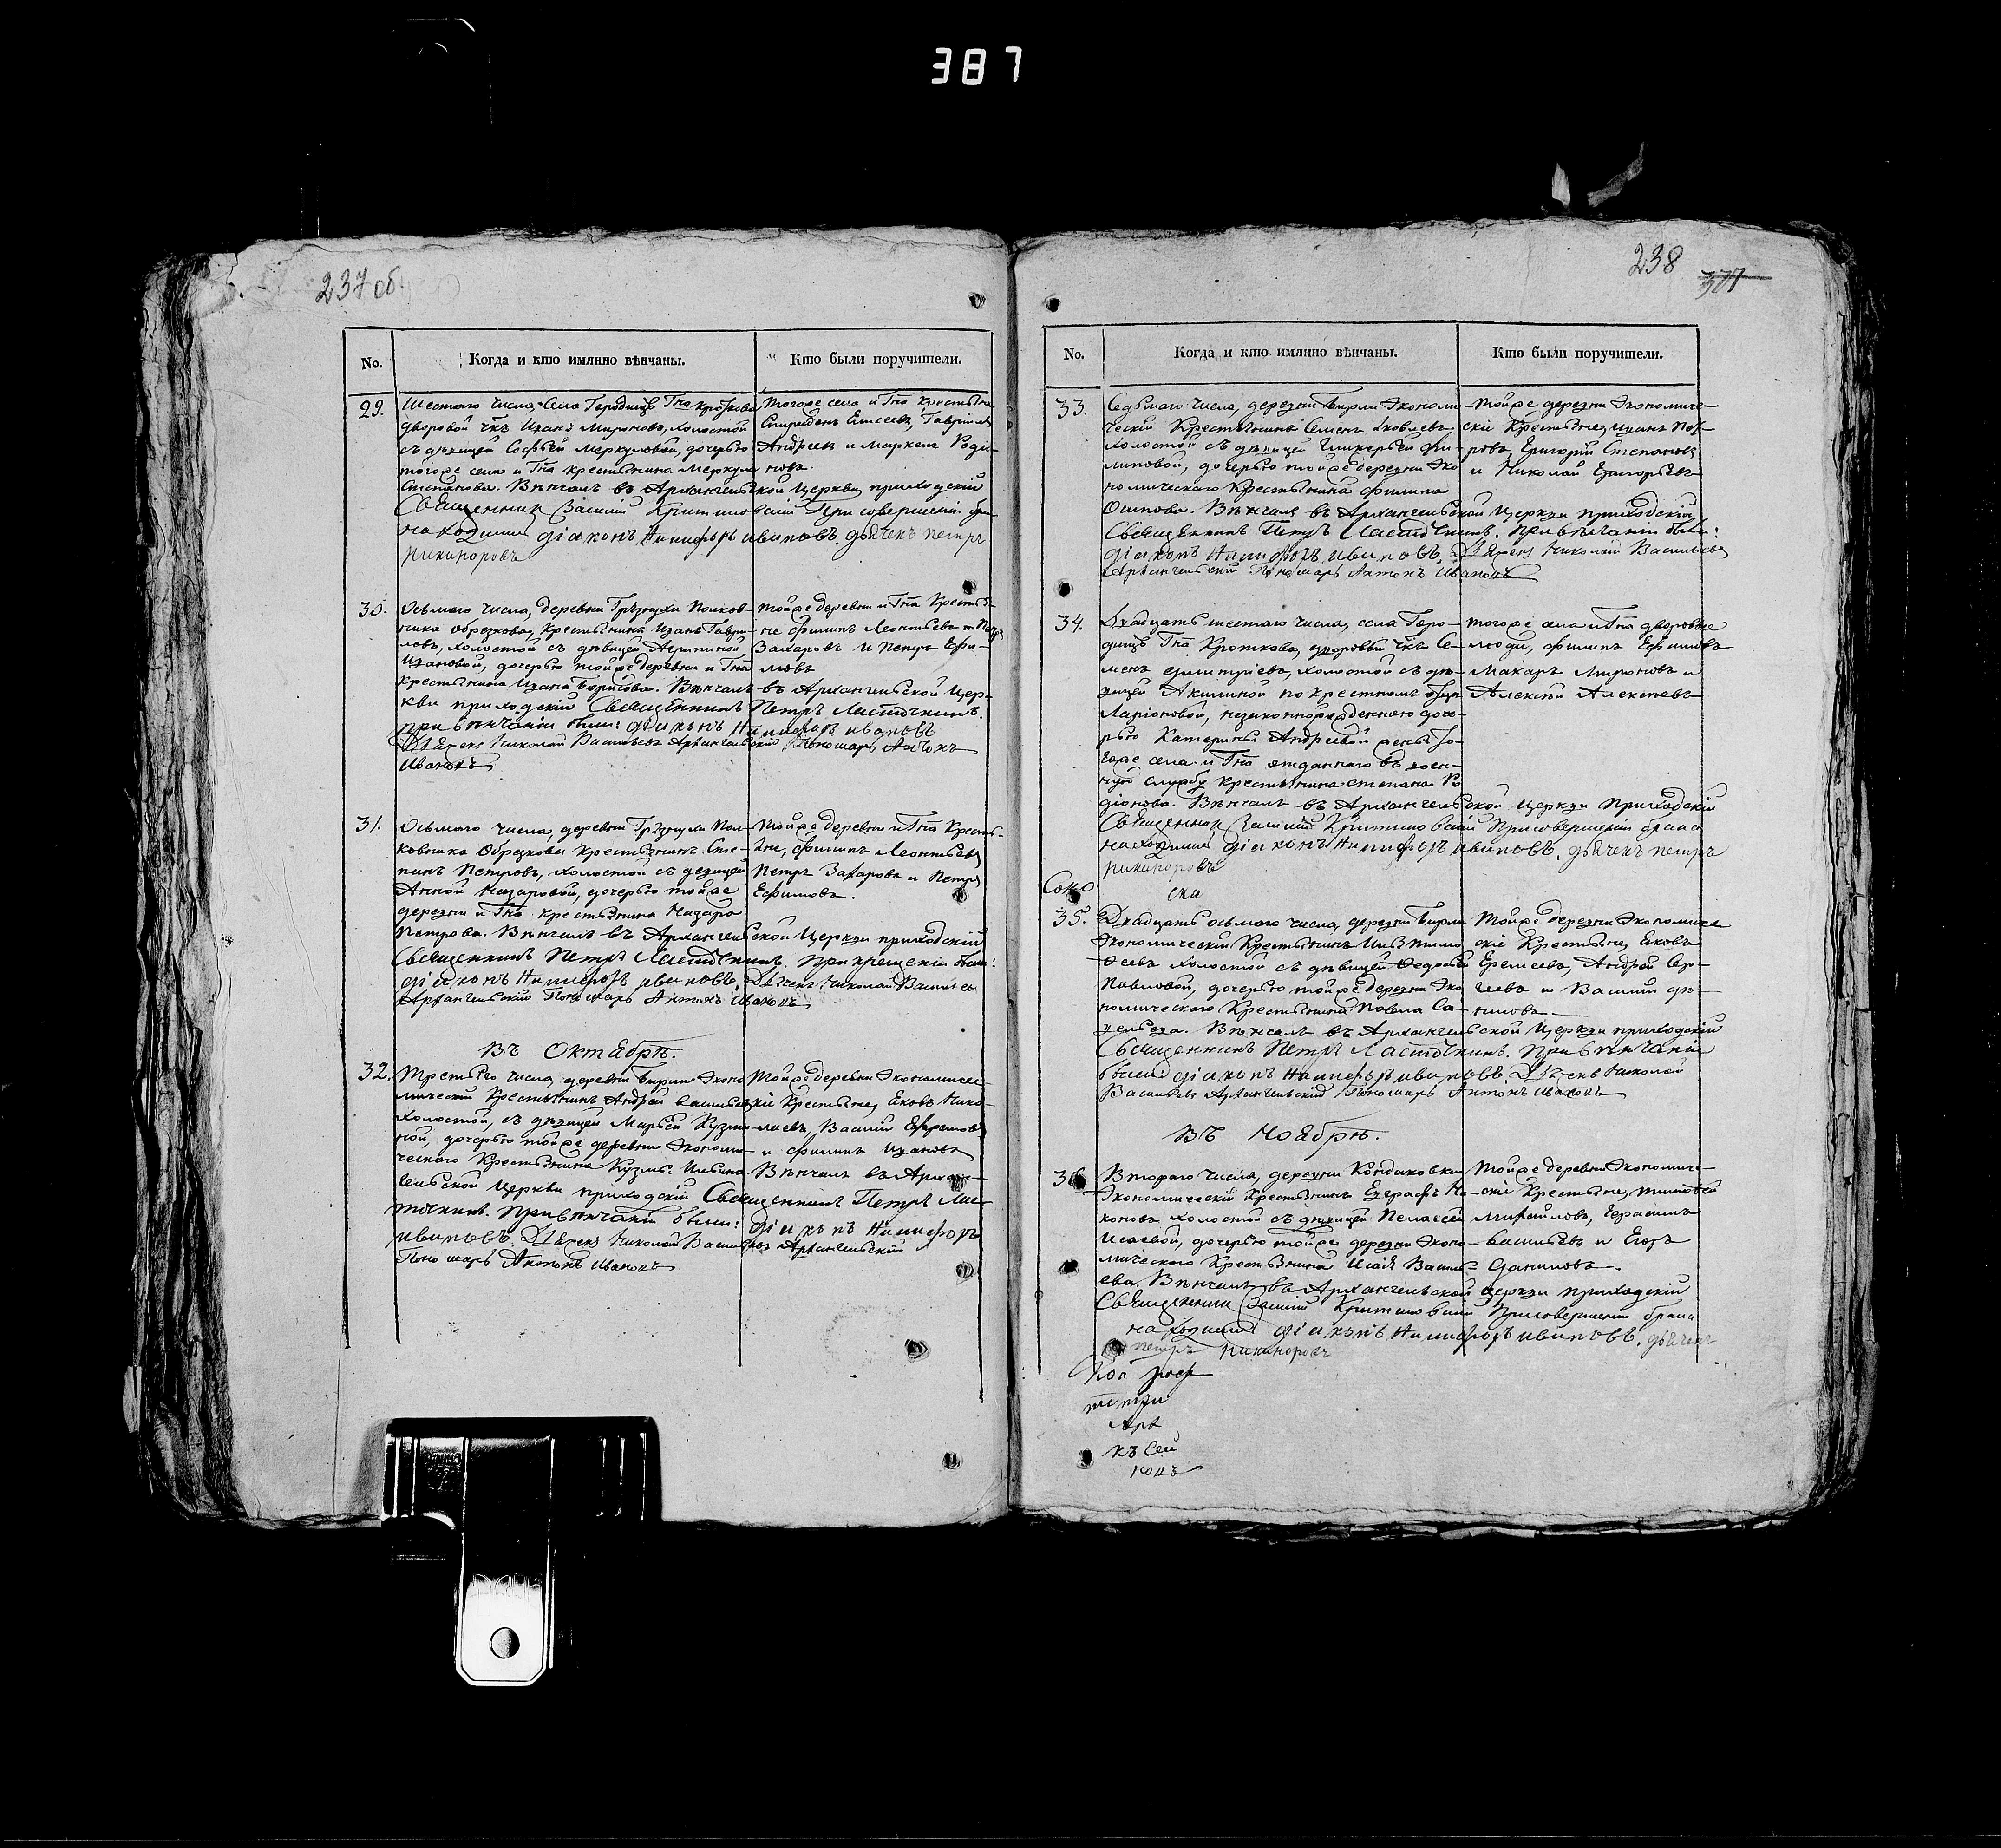 387
237 об.
No.
Когда и кто имянно вѣнчаны.
Кто были поручители.
29.
Шестаго числа, Села Городищъ Гна Кроткова
дворовой чкъ Иванъ Мироновъ, холостой
съ дѣвицей Софьей Меркуловой, дочерью
тогоже села и Гна крестьянина Меркула
Степанова. Вѣнчалъ въ Архангельской Церкви приходскій
Священник Василій
находились діаконъ Никифоръ Ивановъ, дьячекъ Петръ
Никаноровъ
тогоже села и Гна крестьяне
Спиридонъ Елисеевъ, Гаврила
Андреевъ и Маркелъ Родіоновъ.
30.
Осьмаго числа, деревни Грязнухи Полков-
ника Обрезкова, крестьянинъ Иванъ Гаври-
ловъ, холостой съ дѣвицей
Ивановой, дочерью тойже деревни и Гна
крестьянина Ивана Борисова. Вѣнчалъ въ Архангельской Цер-
кви приходскій Священникъ Петръ Ласточкинъ.
при вѣнчаніи были: діаконъ Никифоръ Ивановъ
Дьячекъ Николай Васильевъ Архангельскій Пономарь Антонъ
Ивановъ
тойже деревни и Гна Крестья-
не Филипъ Леонтьевъ, Петръ
Захаровъ и Петръ Ефи-
мовъ
31.
Осьмаго числа, деревни Грязнухи Пол-
ковника Обрезкова крестьянинъ Сте-
панъ Петровъ, холостой съ девицей
Анной Назаровой, дочерью тойже
деревни и Гна крестьянина Назара
Петрова. Вѣнчалъ въ Архангельской Церкви приходскій
Священникъ Петръ Ласточкинъ. При крещеніи были:
діаконъ Никифоръ Ивановъ, Дьячекъ Николай Васильевъ
Архангельскій Пономарь Антонъ Ивановъ
Тойже деревни и Гна Кресть-
яне, Филипъ Леонтьевъ
Петръ Захаровъ и Петръ
Ефимовъ.
Въ Октябрѣ.
32.
Третьяго числа, деревни Бирли Эконо
мическій Крестьянинъ Андрей Васильевъ
холостой, съ дѣвицей Марьей Кузми-
ной, дочерью тойже деревни Экономи-
ческого Крестьянина Кузмы Ильина. Вѣнчалъ въ Архан-
гельской Церкви приходскій Священникъ Петръ Лас-
точкинъ. При вѣнчаніи были: діаконъ Никифоръ
Ивановъ. Дьячекъ Николай Васильевъ Архангельскій
Пономарь Антонъ Ивановъ
Тойже деревни Экономичес-
кіе Крестьяне, Яковъ Нико-
лаевъ, Василій Ефремовъ
и Филипъ Ивановъ
238
377
No.
Когда и кто имянно вѣнчаны.
Кто были поручители.
33.
Седьмаго числа, деревни Бирли Экономи
ческій Крестьянинъ Семенъ Яковлевъ
холостой съ дѣвицей Гликерьей Фи-
липовой, дочерью тойже деревни Эко
номическаго Крестьянина Филипа
Осипова. Вѣнчалъ въ Архангельской Церкви приходскій
Священникъ Петръ Ласточкинъ. При вѣнчаніи были:
діаконъ Никифоръ Ивановъ, Дьячекъ Николай Васильевъ
Архангельскій Пономарь Антонъ Ивановъ
Тойже деревни Экономиче-
скіе Крестьяне, Иванъ Пет-
ровъ, Григорій Степановъ
и Николай Григорьевъ
34.
Двадцать шестаго числа, села Горо-
дищъ Гна Кроткова, дворовый чкъ Се-
менъ Дмитріевъ, холостой съ дѣ-
вицей Акилиной по крестномъ отцѣ
Ларіоновой, незаконнорожденною доче-
рью Катерины Андреевой жены то-
гоже села и Гна отданнаго въ воен-
ную службу крестьянина Степана Ро
діонова. Вѣнчалъ въ Архангельской Церкви Приходскій
Священник Василій
находились діаконъ Никифоръ Ивановъ, дьячекъ Петръ
Никаноровъ
тогоже села и Гна дворовые
люди, Филипъ Ефимовъ
Макаръ Мироновъ и
Алексѣй Алексѣевъ
ска
35.
Двадцать осьмаго числа, деревни Бирли
Экономическій Крестьянинъ
холостой съ дѣвицей Ѳедосьей
Павловой, дочерью тойже деревни Эко
номическаго Крестьянина Павла Са-
вельева. Вѣнчалъ въ Архангельской Церкви приходскій
Священникъ Петръ Ласточкинъ. При вѣнчаніи
были діаконъ Никифоръ Ивановъ, Дьячекъ Николай
Васильевъ Архангельскій Пономарь Антонъ Ивановъ
Тойже деревни Экономиче
скіе Крестьяне, Яковъ
Еремеевъ, Андрей Сер-
гѣевъ и Василій Да-
ниловъ
Въ Ноябрѣ.
36.
Втораго числа, деревни Кондаковки
Экономическій Крестьянинъ Евграфъ Ни-
коновъ холостой съ дѣвицей Пелагеей
Исаевой, дочерью тойже деревни Эконо-
мическаго Крестьянина Исая Василь-
ева. Вѣнчалъ въ Архангельской церкви приходскій
Священник Василій
находились діаконъ Никифоръ Ивановъ, дьячекъ
Петръ Никаноровъ
Тойже деревни Экономиче-
скіе Крестьяне, Тимофей
Михайловъ, Герасимъ
Васильевъ и Егоръ
Даниловъ.